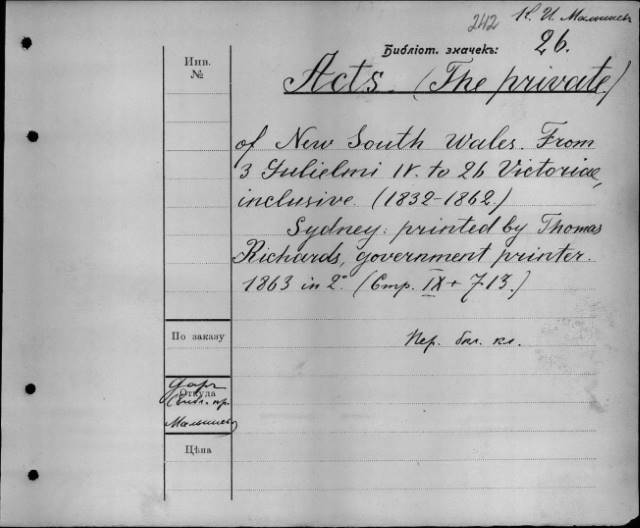 242 К. И. Малышев
Библіот. значекъ: 26.
Инв.
№
Acts (The private)
of New South Wales. From
3 Gulielmi IV. to 26 Victoriae,
inclusive. (1832-1862.)
Sydney: printed by Thomas
Richards, government printer.
1863 in 2°. (Стр. IX + 713.)
По заказу
Пер. бѣл. кл.
Откуда
Даръ
Библ. пр.
Малышев
Цѣна